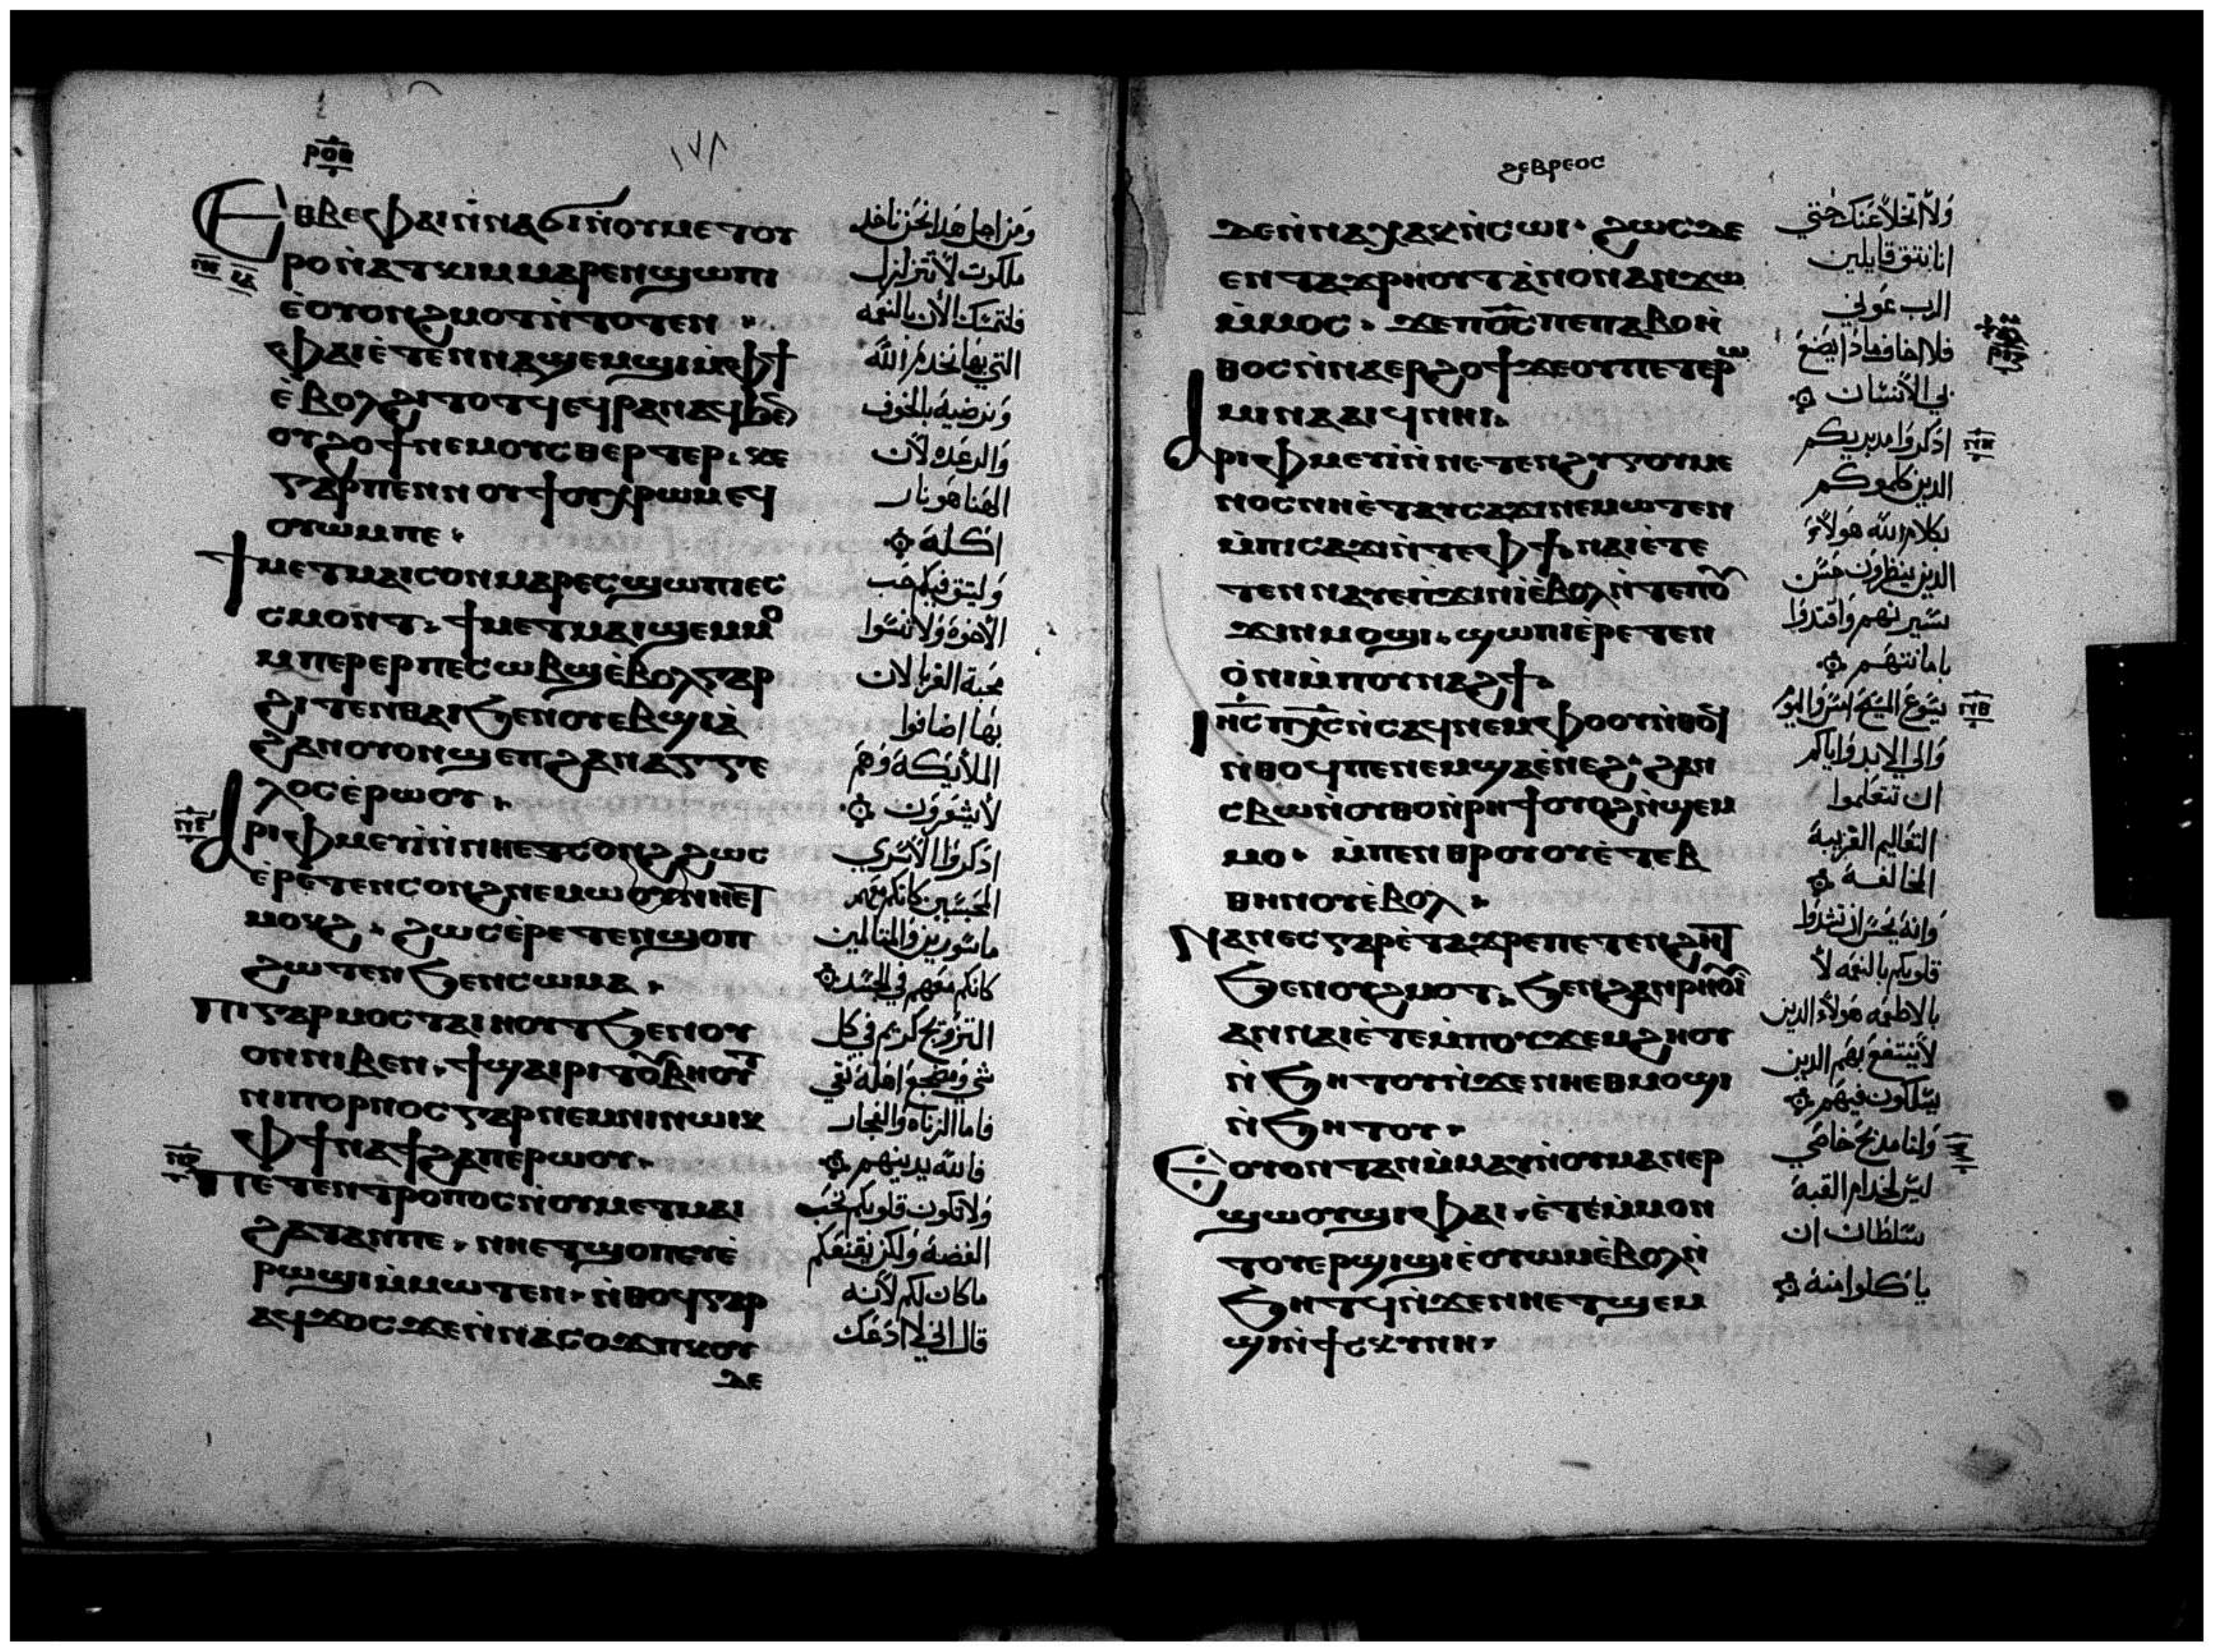 ⲣⲟⲏ
١٧٨
ⲉⲑⲃⲉⲫⲁⲓⲛ̀ⲛⲁϭⲓⲛ̀ⲟⲩⲙⲉⲧⲟⲩ
ⲣⲟⲛ̀ⲁⲧⲕⲓⲙⲙⲁⲣⲉⲛϣⲱⲡⲓ
ⲉ̀ⲟⲩⲟⲛϩⲙⲟⲧⲛ̀ⲧⲟⲧⲉⲛ
ⲫⲁⲓⲉ̀ⲧⲉⲛⲛⲁϣⲉⲙϣⲓⲙ̀ⲫϯ
ⲉ̀ⲃⲟⲗϩⲓⲧⲟⲧϥⲉϥⲣⲁⲛⲁϥϧⲉ̅
ⲟⲩϩⲟϯⲛⲉⲙⲟⲩⲥⲑⲉⲣⲧⲉⲣ. ⲕⲉ
ⲅⲁⲣⲡⲉⲛⲛⲟⲩϯⲟⲩⲭⲣⲱⲙⲉϥ
ⲟⲩⲱⲙⲡⲉ.
ϯⲙⲉⲧⲙⲁⲓⲥⲟⲛⲙⲁⲣⲉⲥϣⲱⲡⲓⲉⲥ
ⲥⲙⲟⲛⲧ. ϯⲙⲉⲧⲙⲁⲓϣⲉⲙⲙⲟ
ⲙⲡⲉⲣⲉⲣⲡⲉⲥⲱⲃϣⲉ̀ⲃⲟⲗⲅⲁⲣ
ϩⲓⲧⲉⲛⲑⲁⲓϧⲉⲛⲟⲩⲉⲃϣⲓⲁ̀
ϩⲁⲛⲟⲩⲟⲛϣⲉⲡϩⲁⲛⲁⲅⲅⲉ
ⲗⲟⲥⲉ̀ⲣⲱⲟⲩ.
ⲁⲣⲓⲫⲙⲉⲩⲓ̀ⲛ̀ⲛⲏⲉⲧⲥⲟⲛϩϩⲱⲥ
ⲉ̀ⲣⲉⲧⲉⲛⲥⲟⲛϩⲛⲉⲙⲱⲟⲩⲛⲏⲉ̀ⲧ
ⲙⲟⲕϩ. ϩⲱⲥⲉ̀ⲣⲉⲧⲉⲛϣⲟⲡ
ϩⲱⲧⲉⲛϧⲉⲛⲥⲱⲙⲁ.
ⲡⲓⲅⲁⲙⲟⲥⲧⲁⲓⲏⲟⲩⲧϧⲉⲛⲟⲩ
ⲟⲛⲛⲓⲃⲉⲛ. ϯϣⲁⲓⲣⲓⲧⲟⲩⲃⲏⲟⲩⲧ
ⲛⲓⲡⲟⲣⲛⲟⲥⲅⲁⲣⲛⲉⲙⲛⲓⲛⲱⲓⲕ
ⲫϯⲛⲁϯϩⲁⲡⲉⲣⲱⲟⲩ.
ⲡⲉⲧⲉⲛⲧⲣⲟⲡⲟⲥⲛ̀ⲟⲩⲙⲉⲧⲙⲁⲓ
ϩⲁⲧⲁⲛⲡⲉ. ⲛⲏⲉⲧϣⲟⲡⲉⲩⲉ̀
ⲣⲱϣⲓⲙ̀ⲙⲱⲧⲉⲛ. ⲛ̀ⲑⲟϥⲅⲁⲣ
ⲁϥϫⲟⲥϫⲉⲛ̀ⲛⲁⲥⲟϫⲡⲕⲟⲩ
ⲇⲉ
وَمن اجل هَدا نحَن ناخد
ملكوت لا تتزلزل
فلنتمسَّك الأن بالنعمَه
التي بهَا نخدم الله
وَنرضيهُ بالخوف
وَالرعَده لان
الهَنا هَو نار
اكله
وَليثق فيكم حُب
الأخوة وَلا تنسَوا
محبة الغربا لان
بهَا اضافوا
الملأيكة وَهَم
لأيشعرون
اذكروا الأسري
المحَبسَين كانكم معَهَم
ماسَورين وَالمتالمين
كانكم معَهم في الجسَد
التزويج كريم في كل
شي وَمضجع اهَله نقي
فاما الزناه وَالفجار
فالله يدينهم
وَلا تكون قلوبكم تحَب
الفضة وَلكن يقنعَكم
ما كان لكم لأنه
قال اني لا ادعَك
ϩⲉⲃⲣⲉⲟⲥ
ⲇⲉⲛ̀ⲛⲁⲭⲁⲕⲛ̀ⲥⲱⲓ. ϩⲱⲥⲇⲉ
ⲉⲛⲧⲁϫⲣⲏⲟⲩⲧⲁ̀ⲛⲟⲛⲁⲛϫⲱ
ⲙ̀ⲙⲟⲥ. ϫⲉⲡⲟ̅ⲥ̅ⲡⲉⲡⲁⲃⲟⲏ̀
ⲑⲟⲥⲛ̀ⲛⲁⲉⲣϩⲟϯϫⲉⲟⲩⲡⲉⲧⲉⲣⲱ
ⲙⲓⲛⲁⲁⲓϥⲛⲏⲓ.
ⲁⲣⲓⲫⲙⲉⲩⲓ̀ⲛ̀ⲛⲉⲧⲉⲛϩⲩⲅⲟⲩⲙⲉ
ⲛⲟⲥⲛⲏⲉ̀ⲧⲁⲩⲥⲁϫⲓⲛⲉⲙⲱⲧⲉⲛ
ⲙ̀ⲡⲓⲥⲁϫⲓⲛ̀ⲧⲉⲫϯ. ⲛⲁⲓⲉ̀ⲧⲉ
ⲧⲉⲛⲛⲁⲩⲉⲡϫⲓⲛⲓ̀ⲉ̀ⲃⲟⲗⲛ̀ⲧⲉⲡⲟⲩ
ϫⲓⲛⲙⲟϣⲓ. ϣⲱⲡⲓⲉ̀ⲣⲉⲧⲉⲛ
ⲟ̀ⲛⲓⲙ̀ⲡⲟⲩⲛⲁϩϯ.
ⲓⲏ̅ⲥ̅ⲡⲭ̅ⲥ̅ⲛ̀ⲥⲁϥⲛⲉⲙⲫⲟⲟⲩⲛ̀ⲑⲟϥ
ⲛ̀ⲑⲟϥⲡⲉⲛⲉⲙϣⲁⲉ̀ⲛⲉϩ. ϩⲁⲛ
ⲥⲃⲱⲛ̀ⲟⲩⲑⲟⲛ̀ⲣⲏϯⲟⲩⲟϩⲛ̀ϣⲉⲙ
ⲙⲟ. ⲙ̀ⲡⲉⲛⲑⲣⲟⲩⲟⲩⲉ̀ⲧⲉⲃ
ⲑⲏⲛⲟⲩⲉ̀ⲃⲟⲗ.
ⲛⲁⲛⲉⲥⲅⲁⲣⲉ̀ⲧⲁϫⲣⲉⲡⲉⲧⲉⲛϩⲏⲧ
ϧⲉⲛⲟⲩϩⲙⲟⲧ. ϧⲉⲛϩⲁⲛϧⲣⲏⲟⲩⲓ̀
ⲁⲛⲛⲁⲓⲉ̀ⲧⲉⲙ̀ⲡⲟⲩϫⲉⲙϩⲏⲟⲩ
ⲛ̀ϧⲏⲧⲟⲩⲛ̀ϫⲉⲛⲏⲉⲑⲙⲟϣⲓ
ⲛ̀ϧⲏⲧⲟⲩ.
ⲉⲟⲩⲟⲛⲧⲁⲛⲙ̀ⲙⲁⲩⲛ̀ⲟⲩⲙⲁⲛⲉⲣ
ϣⲱⲟⲩϣⲓⲫⲁⲓ. ⲉ̀ⲧⲉⲙ̀ⲙⲟⲛ
ⲧⲟⲩⲉⲣϣⲓϣⲓⲉ̀ⲟⲩⲱⲙⲉ̀ⲃⲟⲗⲛ̀
ϧⲏⲧϥⲛ̀ϫⲉⲛⲏⲉⲧϣⲉⲙ
ϣⲓⲛ̀ϯⲥⲕⲩⲛⲏ.
وَلا اتخلا عَنك حَتي
اننا نثق قايلين
الرب عَوني
فلا اخاف ماذا يصَنع
بي الأنسَان
اذكروا مدبريكم
الدين كلموكم
بكلام الله هَولاء
الدين ينظرون حسَن
سَيرتهم وَاقتدوا
بامانتهم
يسَوع المسَيح امسَ وَاليوم
وَالي الابد وَاياكم
ان تتعَلموا
التعَاليم الغريبة
المخالفة
وَانهُ يحَسَن ان تشدوا
قلوبكم بالنعمَه لأ
بالاطعمَه هَولاء الدين
لأينتفع بهَم الدين
يسَلكون فيهَم
وَلنا مدبح خاصَي
ليسَ لخدام القبة
سَلطان ان
ياكلوا منهُ